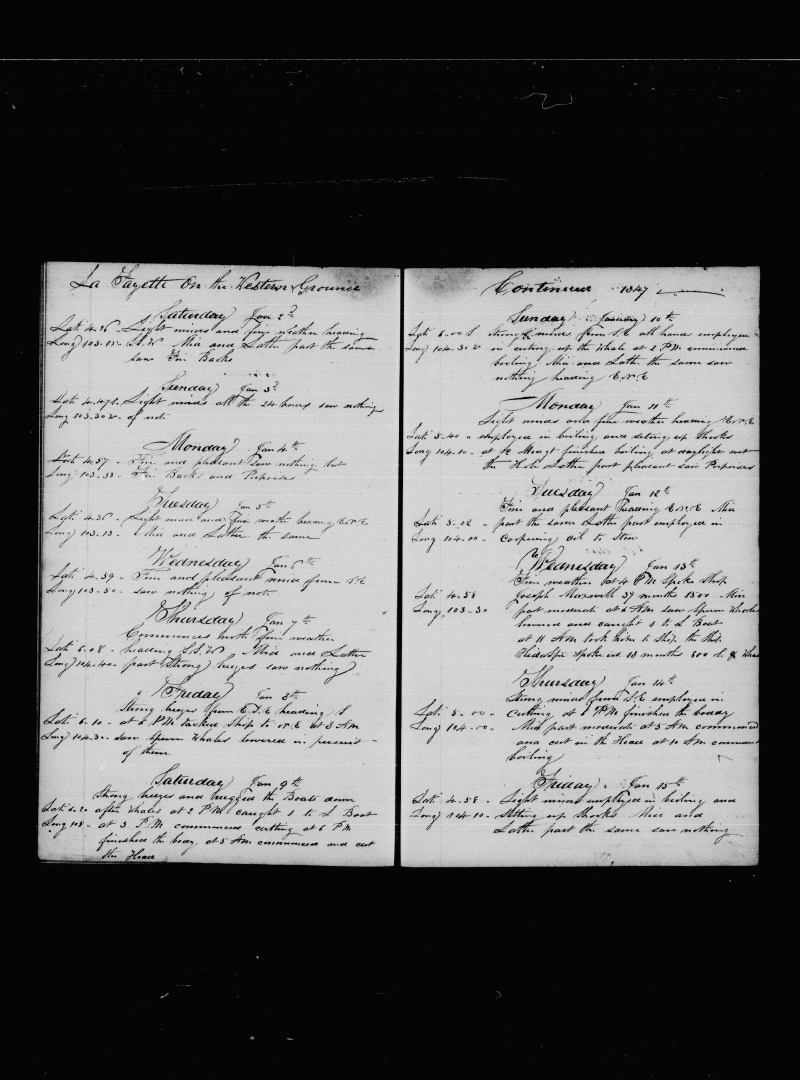 La Fayette On the Western Ground
Saturday Jan 2d
Lati 4.36 Light winds and fine weather heading
Long 103.15 S.S.W Mid and Latter part the same
saw Fin Backs
Sunday Jan 3d
Lati 4.47 S. Light winds all the 24 hours saw nothing
Long 103.30 W of note
Monday Jan 4th
Lati 4.57 Fine and pleasant saw nothing but
Long 103.33 Fin Backs and Porpoises
Tuesday Jan 5th
Lati 4.36 Light winds and fine weather heading E.N.E
Long 103.13 Mid and Latter the same
Wednesday Jan 6th
Lati 4.39 Fine and pleasant wind from S.E
Long 103.50 saw nothing of note
Thursday Jan 7th
Commences with fine weather
Lati 5.08 heading S.S.W Mid and Latter
Long 104.40 part Strong breezes saw nothing
Friday Jan 8th
Strong breezes from E.S.E heading S
Lati 6.10 at 6 P.M tacked Ship to N.E at 3 A.M
Long 104.30 saw Sperm Whales lowered in pursuit
of them
Saturday Jan 9th
Strong breezes and the Boats down
Lati 6.20 after Whales at 2 P.M caught 1 to S Boat
Long 105 at 3 P.M commenced cutting at 6 P.M
finished the body at 5 A.M commenced and cut
the Head
Continued 1847
Sunday January 10th
Lati 6.00 S. Strong winds from S.E all hands employed
Long 104.30 W in cutting up the Whale at 2 P.M commenced
boiling Mid and Latter the same saw
nothing heading E.N.E
Monday Jan 11th
Light winds and fine weather heading E.N.E
Lati 5.40 employed in boiling and seting up Shooks
Long 104.10 at 12 finished boiling at daylight
the Latter part pleasant saw Porpoises
Tuesday Jan 12th
Fine and pleasant heading E.N.E Mid
Lati 5.02 part the same Latter part employed in
Long 104.00 Coopering oil to Stow
Wednesday Jan 13th
Fine weather at 4 P.M Spoke Ship
Lati 4.58 Joseph Maxwell 39 months 1500 Mid
Long 103.30 part moderate at 6 A.M saw Sperm Whales
lowered and caught 1 to S Boat
at 11 A.M took him to Ship the Ship
Hidaspe spoke us 13 months 800
Thursday Jan 14th
Strong winds from S.E employed in
Lati 5.00 Cutting at 6 P.M finished the boddy
Long 104.00 Mid part moderate at 5 A.M commenced
and cut in the Head at 10 A.M commenced
boiling
Friday Jan 15th
Lati 4.58 Light winds employed in boiling and
Long 104.10 Setting up Shooks Mid and
Latter part the same saw nothing